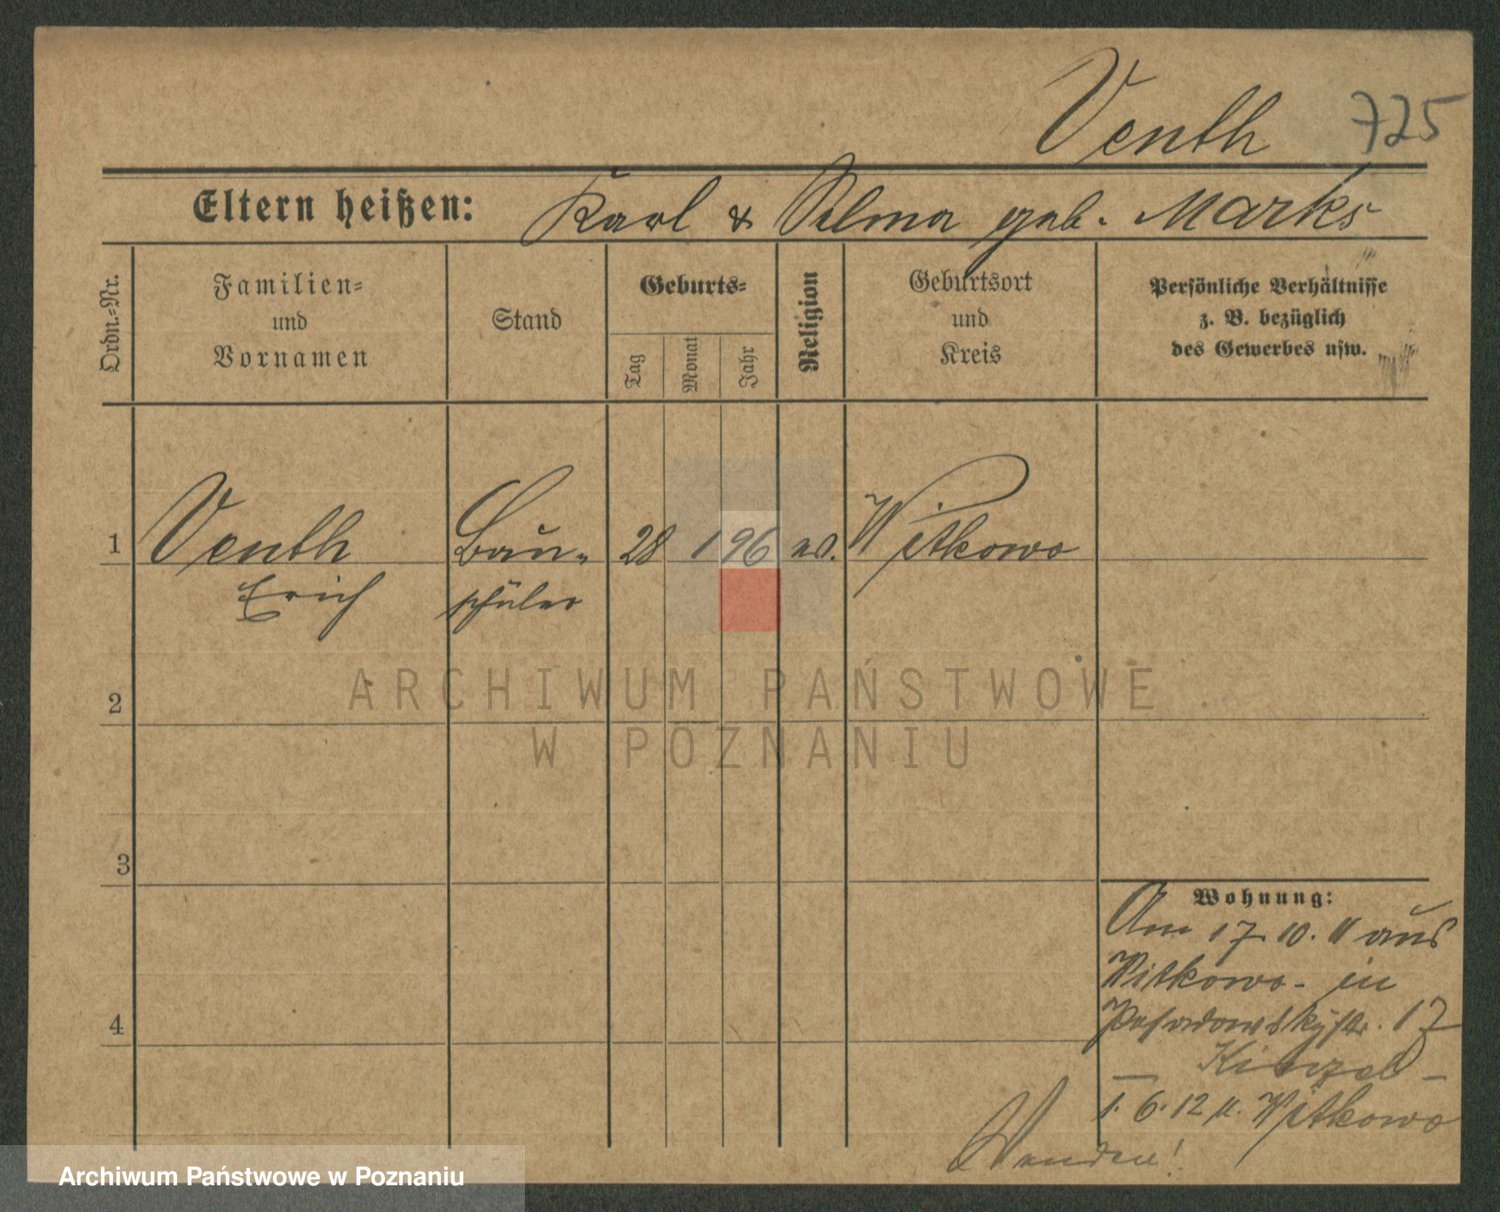 Venth 725
Eltern heißen: Karl & Selma geb. Marks
Ordn.-Nr.
Familien-
und
Vornamen
Stand
Geburts-
Tag
Monat
Jahr
Religion
Geburtsort
und
Kreis
Persönliche Verhältnisse
z. B. bezüglich
des Gewerbes usw.
1 Venth Bau- 28 1 96 ev. Witkowo
Erich schüler
2
3
4
Wohnung:
Am 17.10.11 aus
Witkowo - in
Posadowskystr. 17
— Kinzel —
1.6.12 n. Witkowo
Wenden!
ARCHIWUM PAŃSTWOWE
W POZNANIU
Archiwum Państwowe w Poznaniu